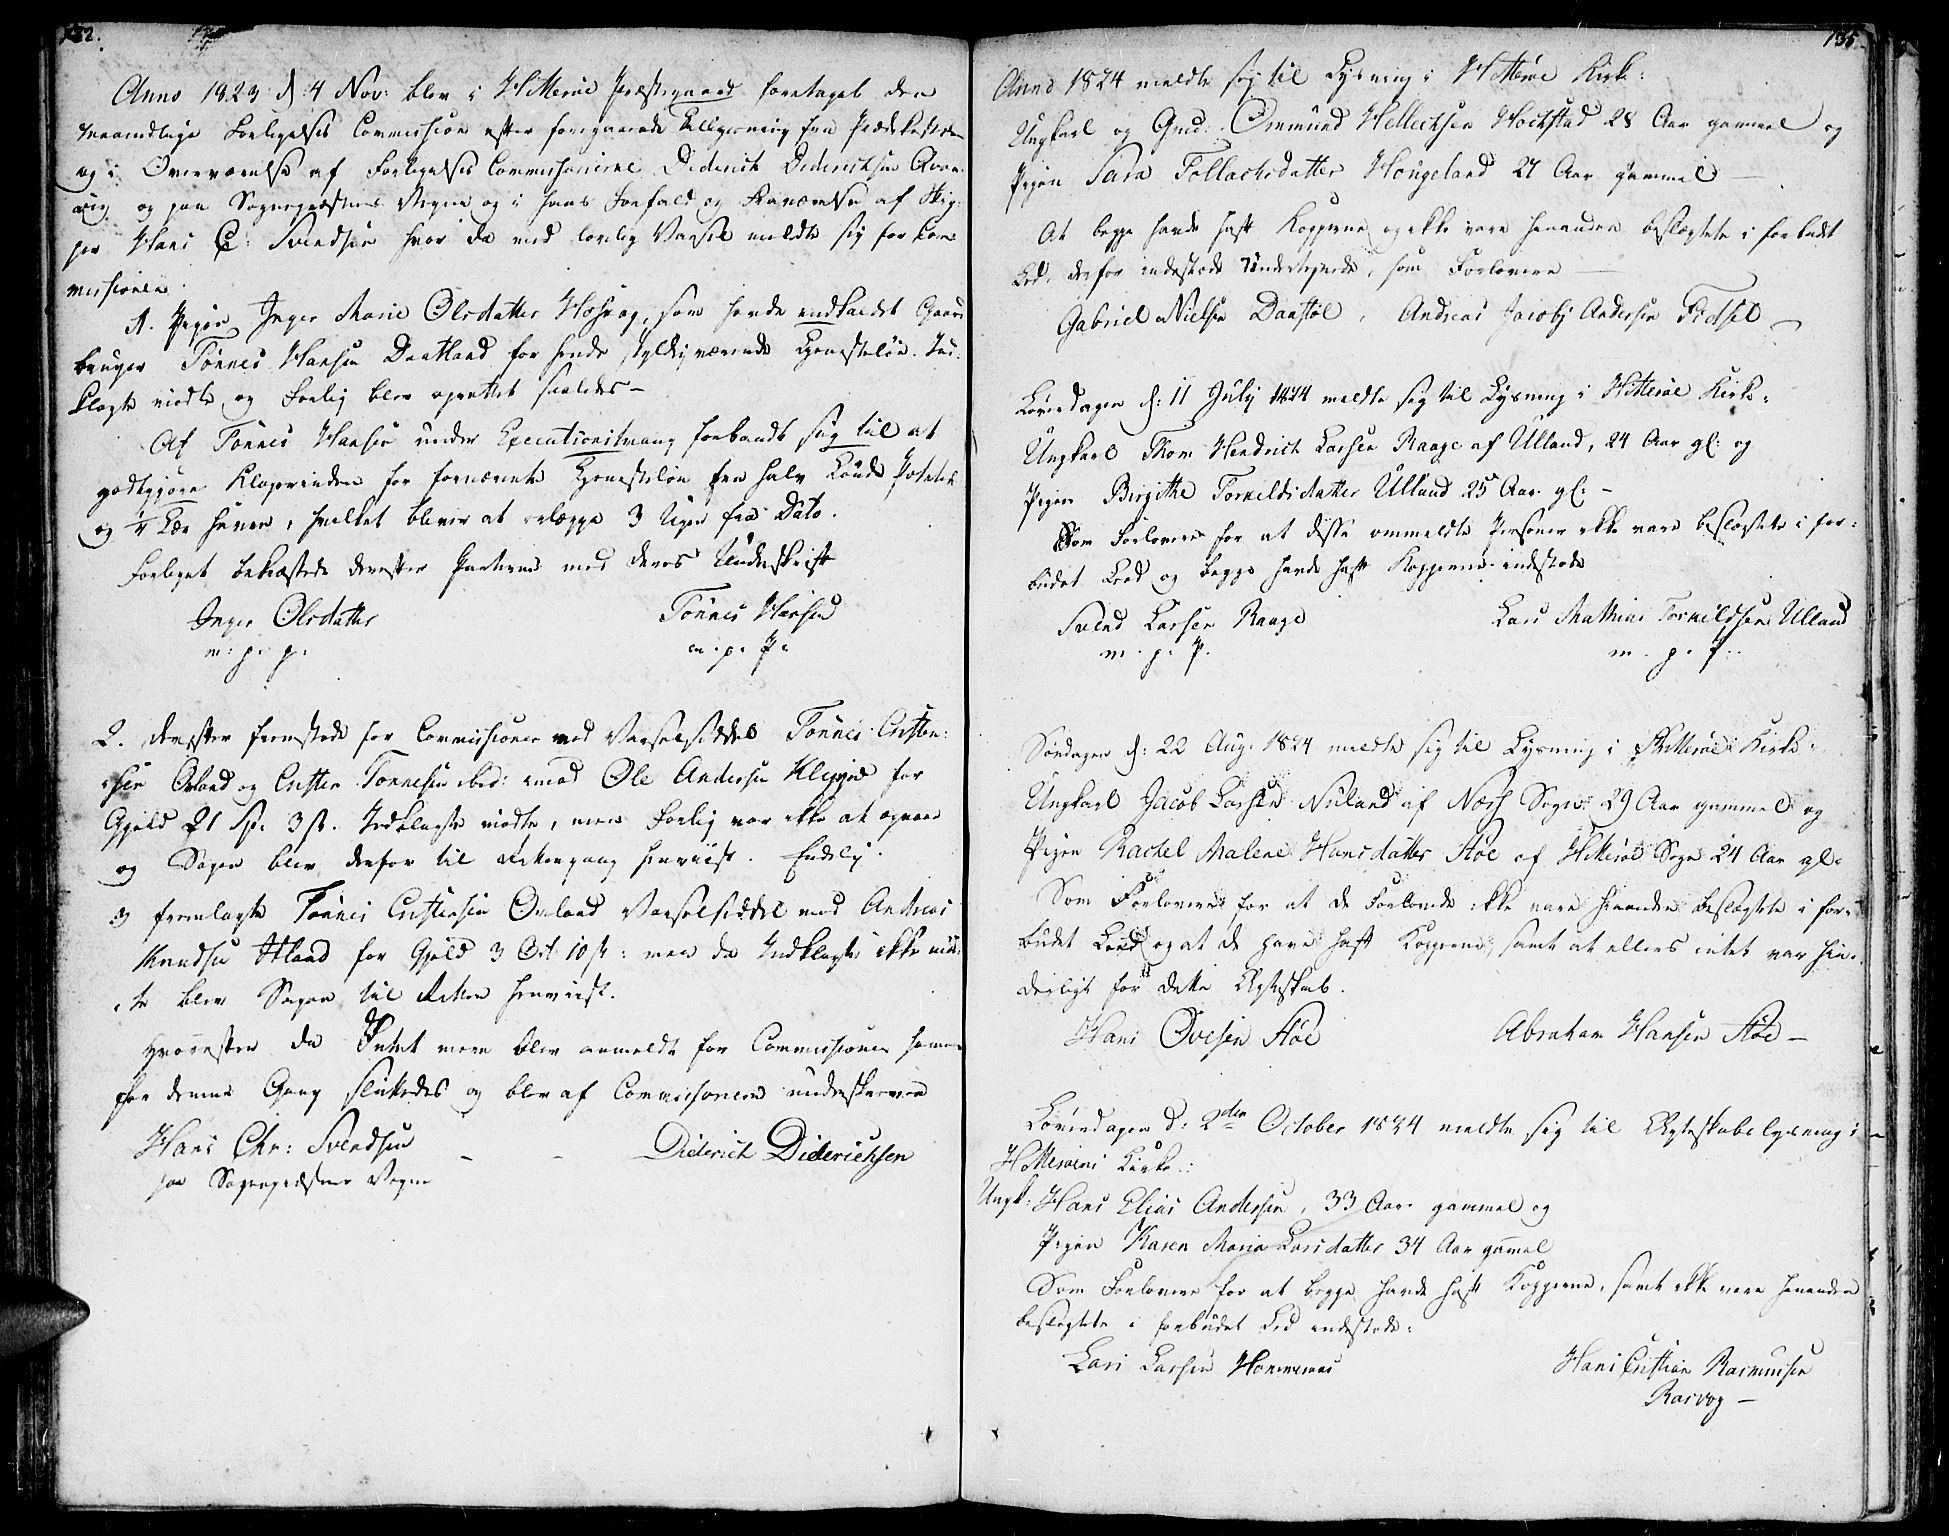 132.
Anno 1823 d: 4 Nov: blev i Hitterøe Præstegaard foretaget den
maanedlige Forligelses Commission efter foregaaende Tillysning fra Prædikestolen
og i Overværelse af Forligelses Commissairerne Diderich Diderichsen
og paa Sognepræstens Vegne og i hans Forfald og Fraværelse af
Hans C: Svendsen hvor da med lovlig Varsel meldte sig for Com-
missionen:
1. Pigen Inger Marie Olsdatter, som havde indkaldet Gaard-
bruger Tønnes Hansen Daatland for hende skyldigværende Tjenesteløn. Ind-
klagte mødte og Forlig blev oprettet saaledes –
At Tønnes Hansen under Executionstvang forbandt sig til at
godtgjøre Klagerinden for fornævnte Tjenesteløn en halv Tønde Poteter
og 1/4 , hvilket bliver at erlægge 3 Uger fra Dato.
Forliget bekræftede derefter Parterne med deres Underskrift
Inger Olsdatter Tønnes Hansen
m. p. p. m. p. P.
2. Derefter fremstode for Commissionen med Varselseddel Tønnes Christen-
sen Øvland og Christen Tønnesen ibid: imod Ole Andersen for
Gjeld 21 Sp. 3 s. Indklagte mødte, men Forlig var ikke at opnaae
og Sagen blev derfor til Rettergang henviist. Endelig
3 fremlagde Tønnes Christensen Øvland Varselseddel mod Andreas
Knudsen for Gjeld 3 Ort 10 s: men da Indklagte ikke mød-
te blev Sagen til Retten henviist.
Hvorefter da Intet mere blev anmeldt for Commissionen samme
for denne Gang sluttedes og blev af Commissairerne underskreven
Hans Chr: Svendsen – – Diderich Diderichsen
paa Sognepræstens Vegne
135
Anno 1824 meldte sig til Lysning i Hitterøe Kirke:
Ungkarl og Gmd: Ommund Hellechsen 28 Aar gammel og
Pigen Sara Tollachsdatter Hougeland 27 Aar gammel –
At begge havde haft Kopperne og ikke vare hinanden beslægtede i forbudt
Led, derfor indestode Undertegnede, som Forlovere –
Gabriel Nielsen Daastøl, Andreas Jacob Andersen Fidsel –
Løverdagen d: 11 July 1824 meldte sig til Lysning i Hitterøe Kirke:
Ungkarl Thom Hendrich Larsen Raage af Ulland, 24 Aar gl: og
Pigen Birgithe Torkildsdatter Ulland 25 Aar gl: –
Som Forlovere for at disse ommeldte Personer ikke vare beslægtede i for-
budet Leed og begge havde haft Kopperne indestode
Svend Larsen Raage Lars Mathias Torkildsen Ulland
m. p. P. m. p. P.
Søndagen d: 22 Aug: 1824 meldte sig til Lysning i Hitterøe Kirke:
Ungkarl Jacob Larsen Nuland af Næss Sogn 29 Aar gammel og
Pigen Rachel Malene Hansdatter Støe af Hitterøe Sogn 24 Aar gl.
Som Forlovere for at de Forlovede ikke vare hinanden beslægtede i for-
budet Leed og at de have haft Kopperne, samt at ellers intet var hin-
derligt for dette Ægteskab.
Hans Ovesen Støe Abraham Hansen Støe –
Løverdagen d: 2den October 1824 meldte sig til Ægteskabs lysning i
Hitterøens Kirke:
Ungk: Hans Elias Andersen, 33 Aar gammel og
Pigen Karen Maria Larsdatter 34 Aar gammel
Som Forlovere for at begge havde haft Kopperne, samt ikke vare hinanden
beslægtede i forbudet Led indestode:
Lars Larsen Hommenes Hans Christian Rasmusen
Rasvog –